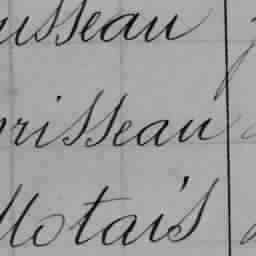 usseau
risseau
Motais